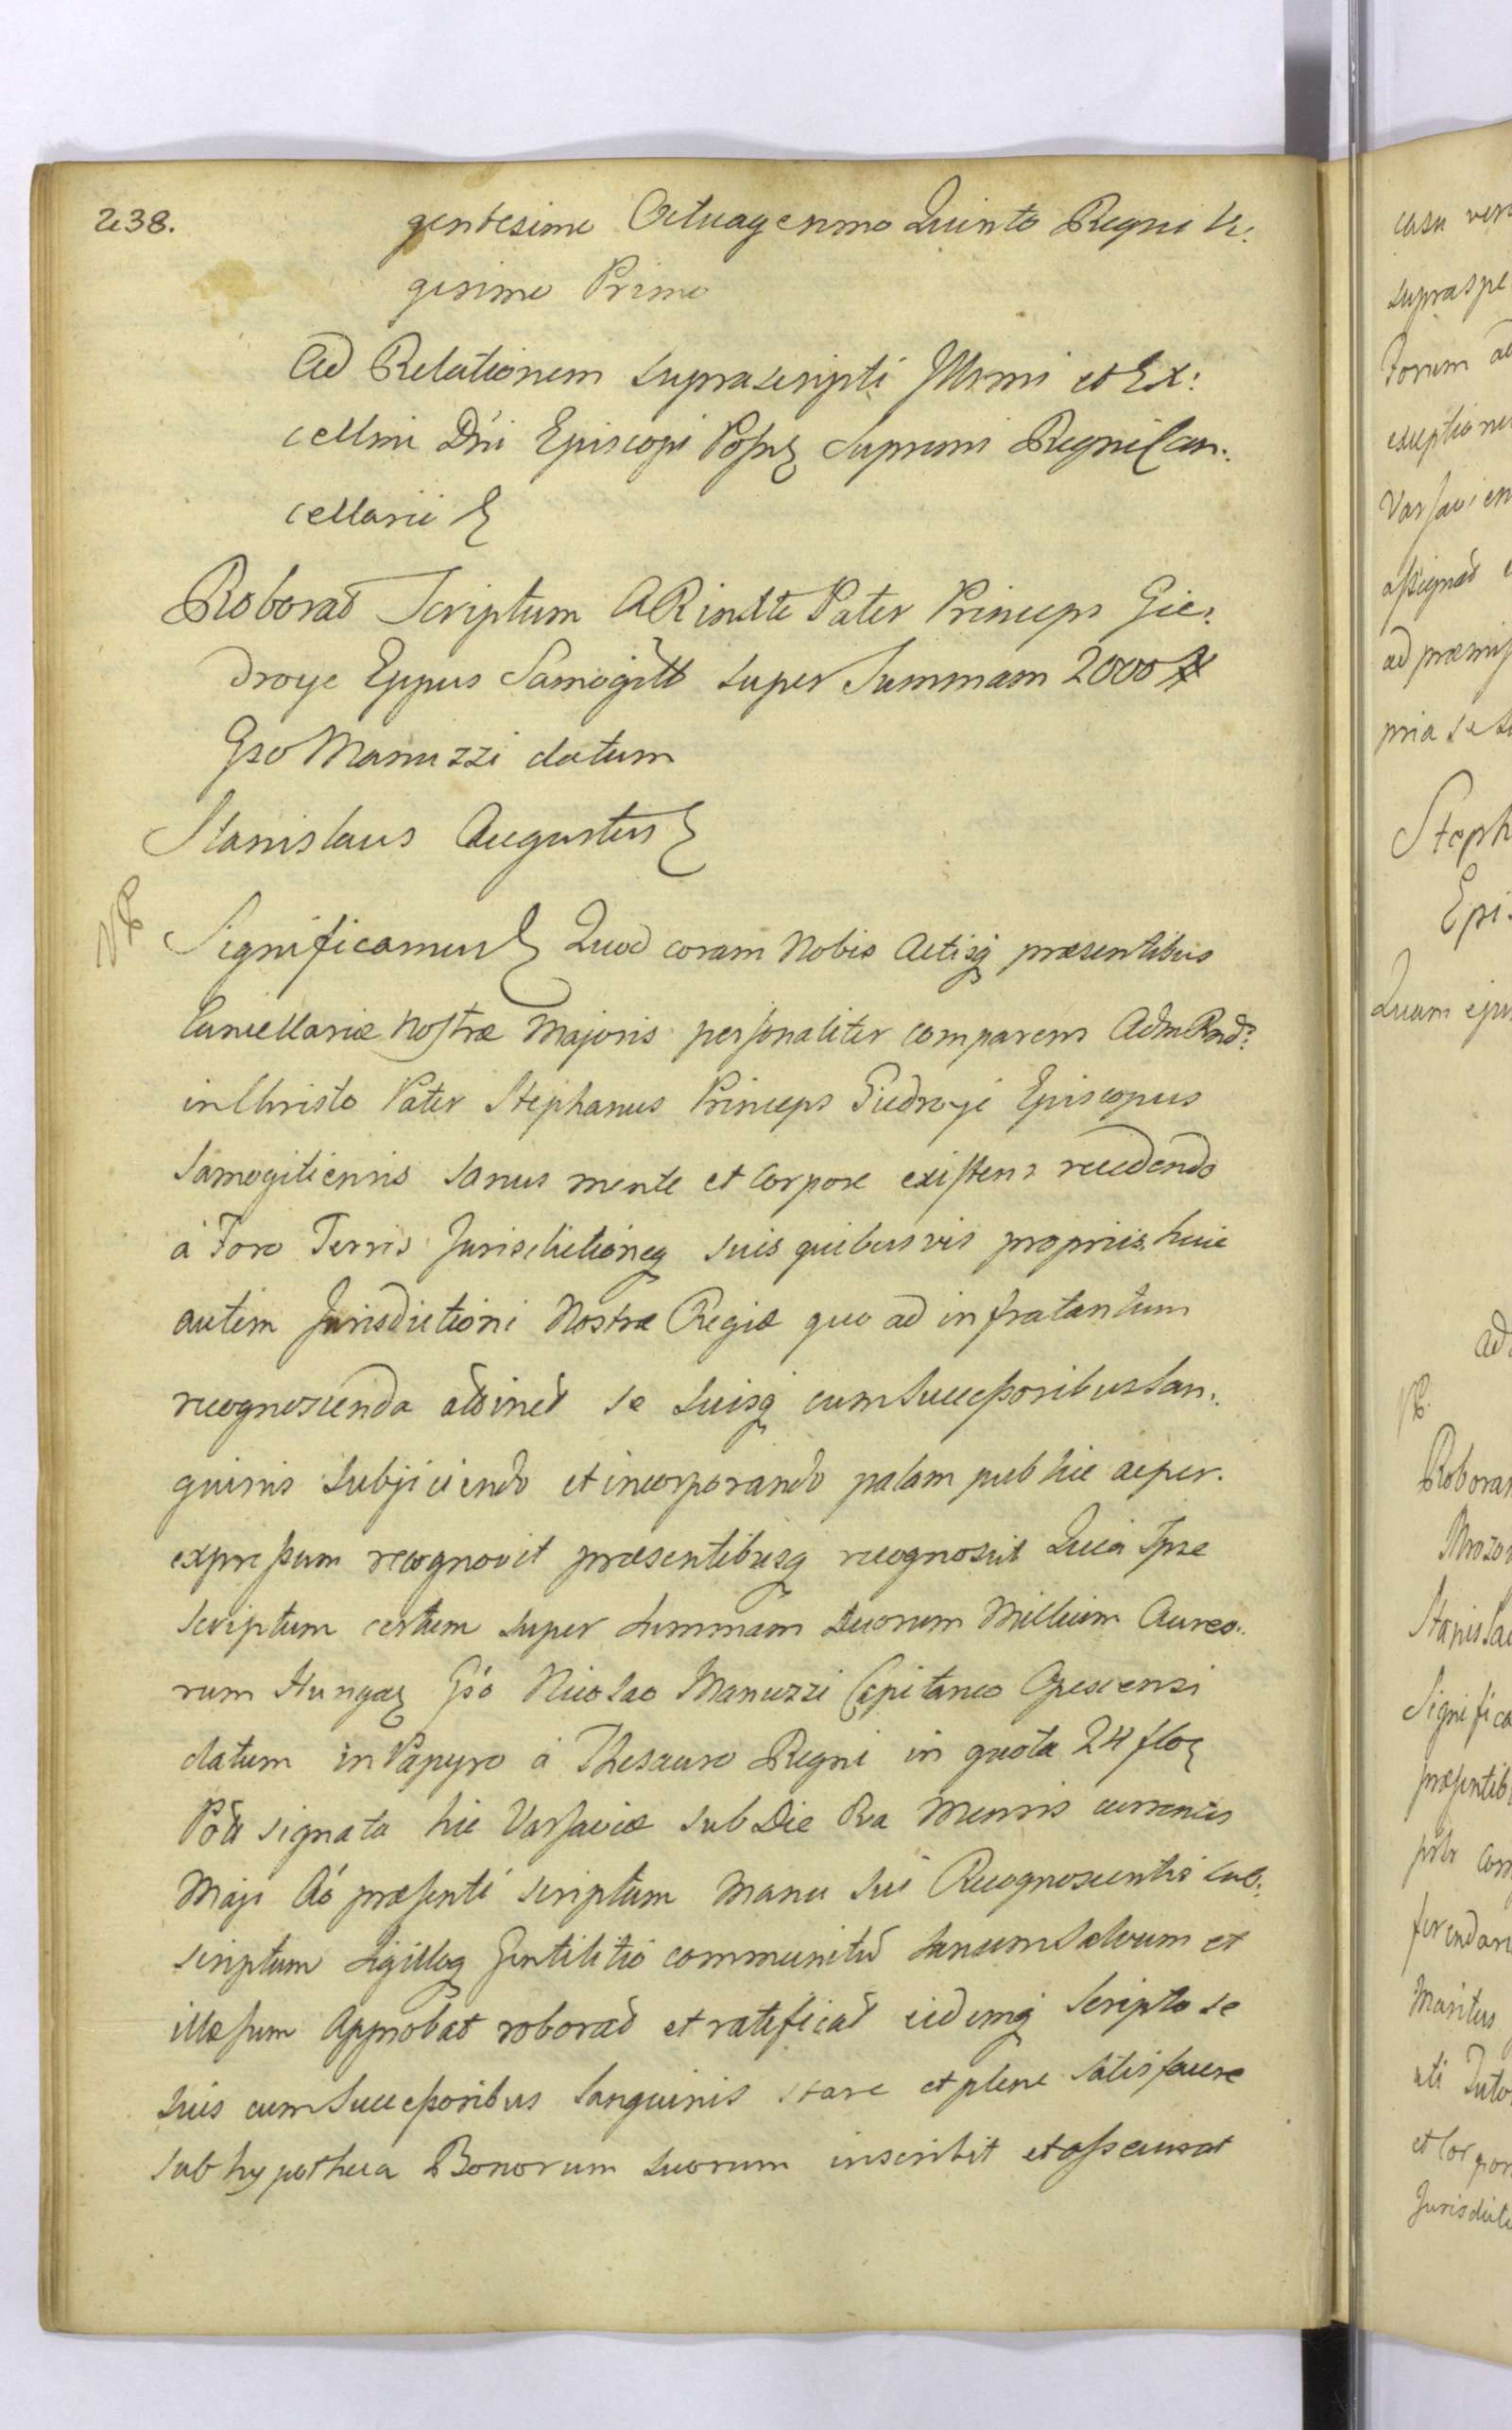 238.
gentesimo Octuagesimo Quinto Regni Vi:
gesimo Primo
Ad Relationem suprascripti Illrmi et Ex:
cellmi Dni Episcopi Posn supremi Regni Can:
cellarii
Roborat Scriptum ARindte Pater Princeps Gie:
droyc Eppus Samogitt super Summam 2000 #
Gso Manuzzi datum
Stanislaus Augustus
NB
Significamus Quod coram Nobis Actisq præsentibus
Cancellariæ Nostræ Majoris personaliter comparens Adm Rnd:
in Christo Pater Stephanus Princeps Giedroyc Episcopus
Samogitiensis sanus mente et Corpore existens recedendo
à Foro Terris Jurisdictioneq suis quibusvis propriis huic
autem Jurisdictioni Nostræ Regiæ quo ad infratantum
recognoscenda attinet se suisq cum Successoribus San:
guinis subjiciendo et incorporando palam publice ac per:
expressum recognovit præsentibusq recognoscit Quia Ipse
Scriptum certum super summam duorum Millium Aureo:
rum Hungar Gso Nicolao Manuzzi Capitaneo Opescensi
datum in Papyro à Thesauro Regni in quota 24 flor
Poll signata hic Varsaviæ sub Die mensis currentis
Maji Aó præsenti scriptum manu sui Recognoscentis sub:
scriptum sigilloq Gentilitio communitu sanum salvum et
illæsum Approbat roborat et ratificat eidemq Scripto se
suis cum Successoribus Sanguinis stare et plene satisfacere
sub hypotheca Bonorum suorum inscribit et assecurat
casu
supraspe
Forum ad
exceptione
Varsavien
assignat
ad præmis
pria se
Steph
Epi:
Quam
ad
NB.
Roborat
Mrozo
Stanislau
Significa
præsentib
com
ferendar
Maritus
uti Tuto
et Corpor
Jurisdicti